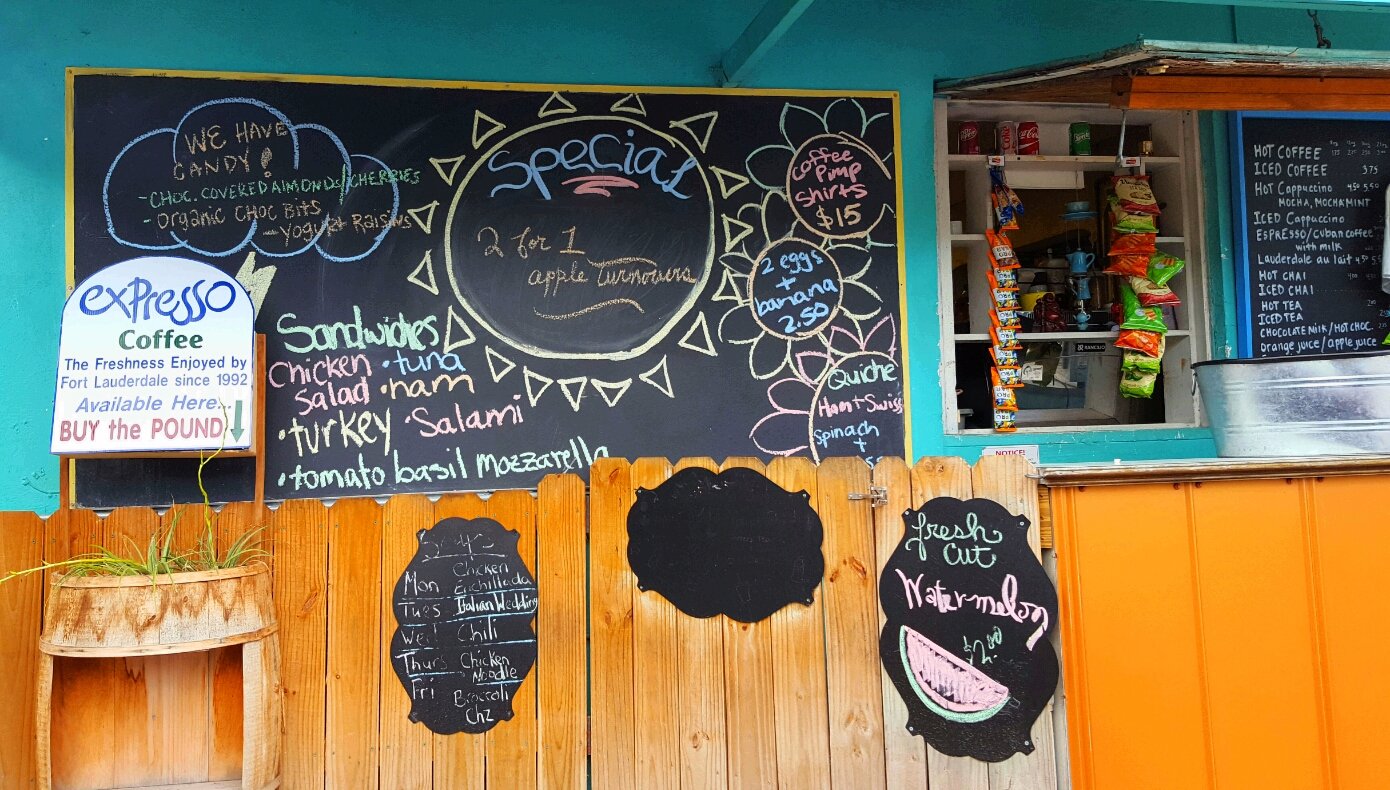 WE HAVE
CANDY!
-CHOC. COVERED AlMONDS/CHERRIES
-Organic CHOC BitS
-Yogurt RaisiNs
exPresso
Coffee
The Freshness Enjoyed by
Fort Lauderdale since 1992
Available Here...
BUY the POUND
Special
2 for 1
apple turnovers
Sandwiches
Chicken •tuna
Salad •ham
•turkey •Salami
•tomato basil mozzarella
Coffee
Pimp
Shirts
$15
2 eggs
+
banana
2.50
Quiche
Ham+Swiss
Spinach
+
Soups
Mon Chicken Enchillada
Tues Italian Wedding
Wed Chili
Thurs Chicken Noodle
Fri Broccoli Chz
fresh
Cut
Watermelon
$2.00
HOT COFFEE
ICED COFFEE 375
HOT Cappuccino 450 550
MOCHA, MOCHA MINT
ICED Cappuccino
ESPRESSO/cuban coffee
with milk
Lauderdale au lait
HOT CHAI
ICED CHAI
HOT TEA
ICED TEA
CHOCOLATE MILK/HOT CHOC.
orange juice/apple juice
RANCILIO
NOTICE!